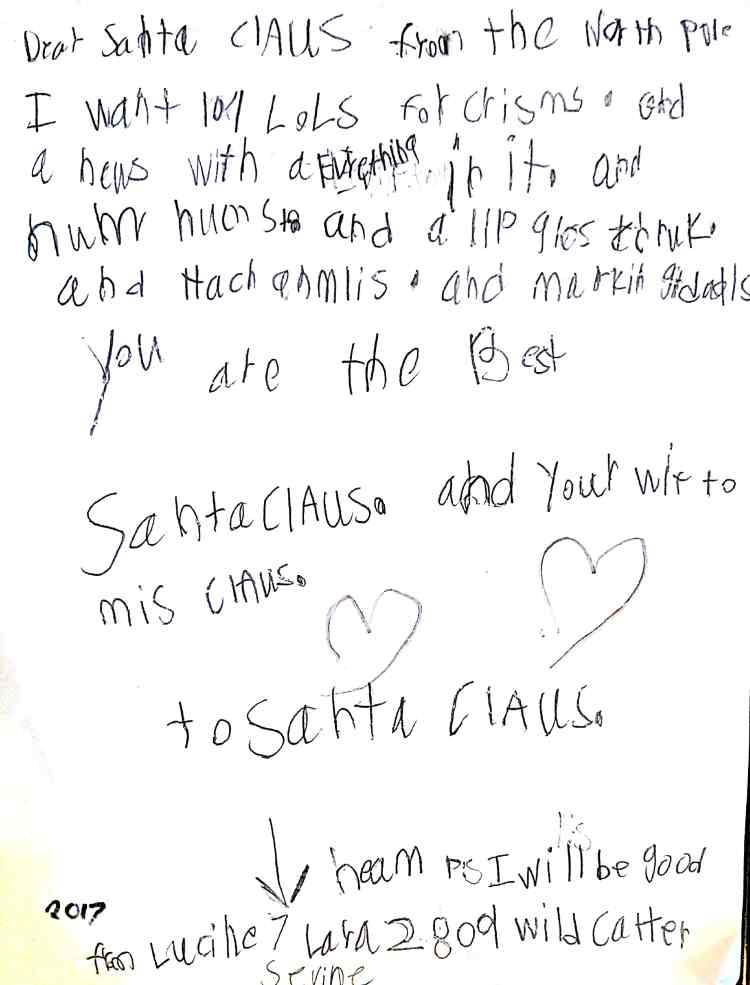 Dear Santa CLAUS from the North Pole
I want 101 LOLS for crisms. and
a hews with a Evrething in it. and
and a lip glos
and Hach anmlis. and
you are the Best
Santa CLAUS. and your wif to
mis CLAUS.
to Santa CLAUS.
heam PS I will be good
2017
from Lucine 7 Lara 2 wild Carter